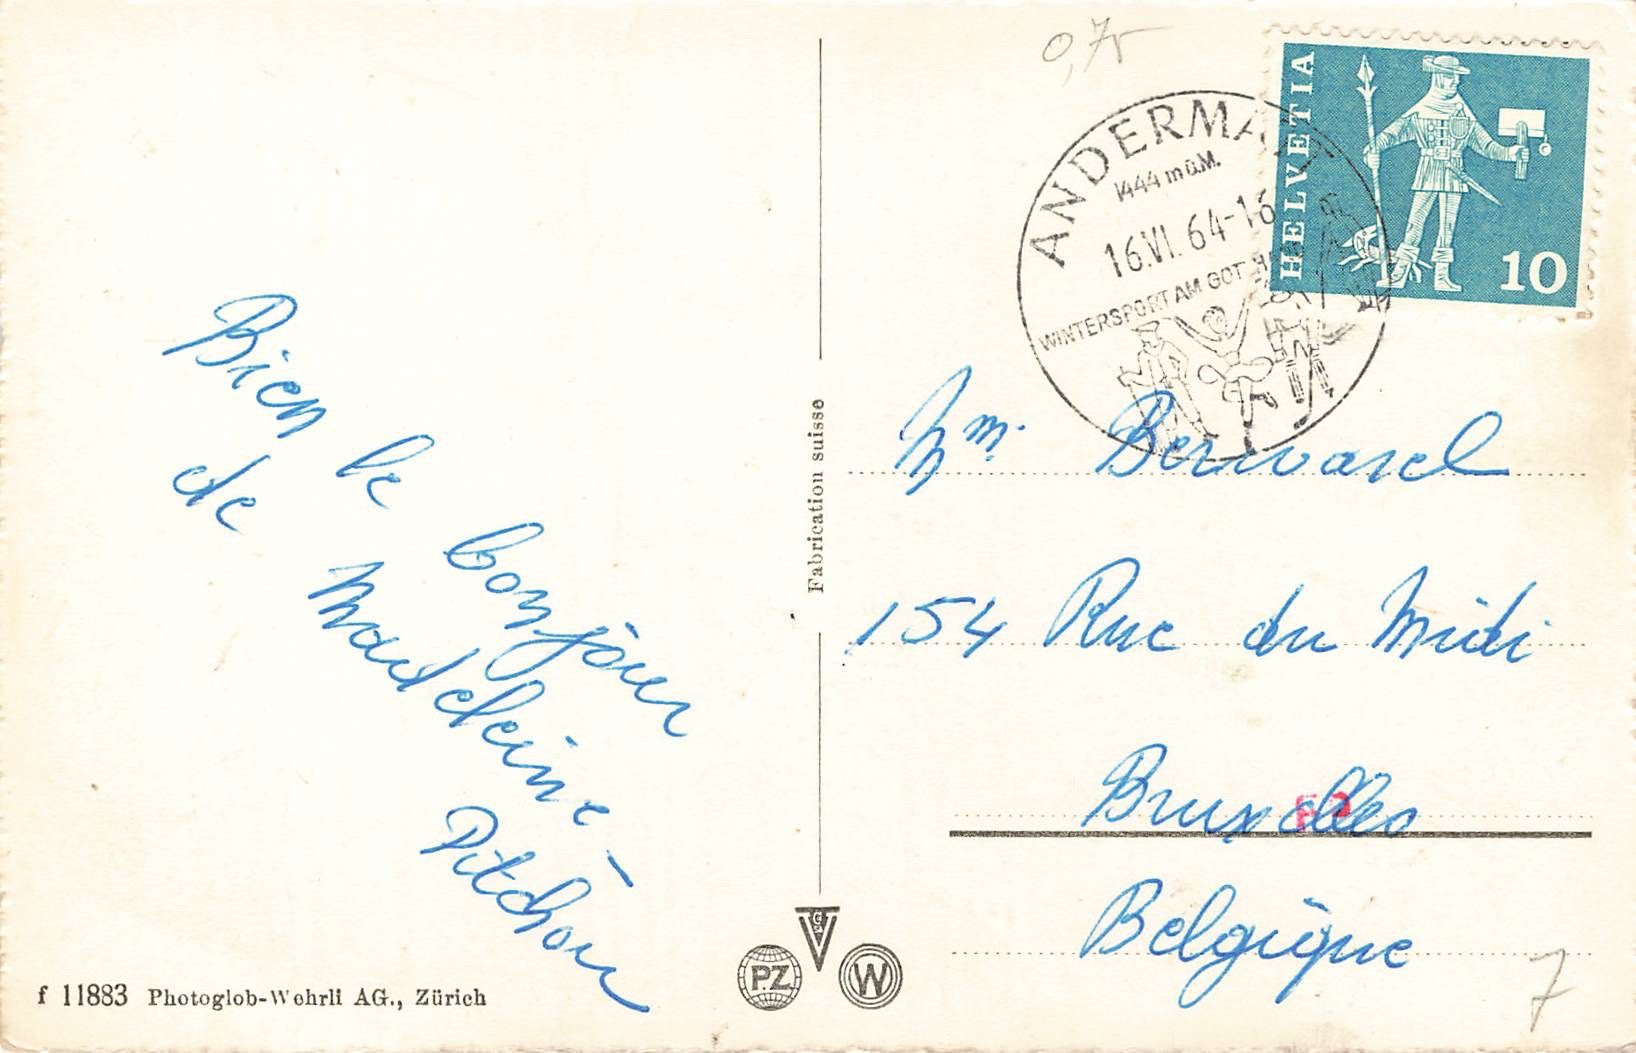 Bien le bonjour
de Madeleine -
Pitchou
f 11883 Photoglob-Wehrli AG., Zürich
Fabrication suisse
PZ
W
0,75
HELVETIA
10
ANDERMATT
1444 m ü.M.
16.VI.64-16
WINTERSPORT AM GOTTHARD
Mm.
154 Rue du Midi
Bruxelles
Belgique
7